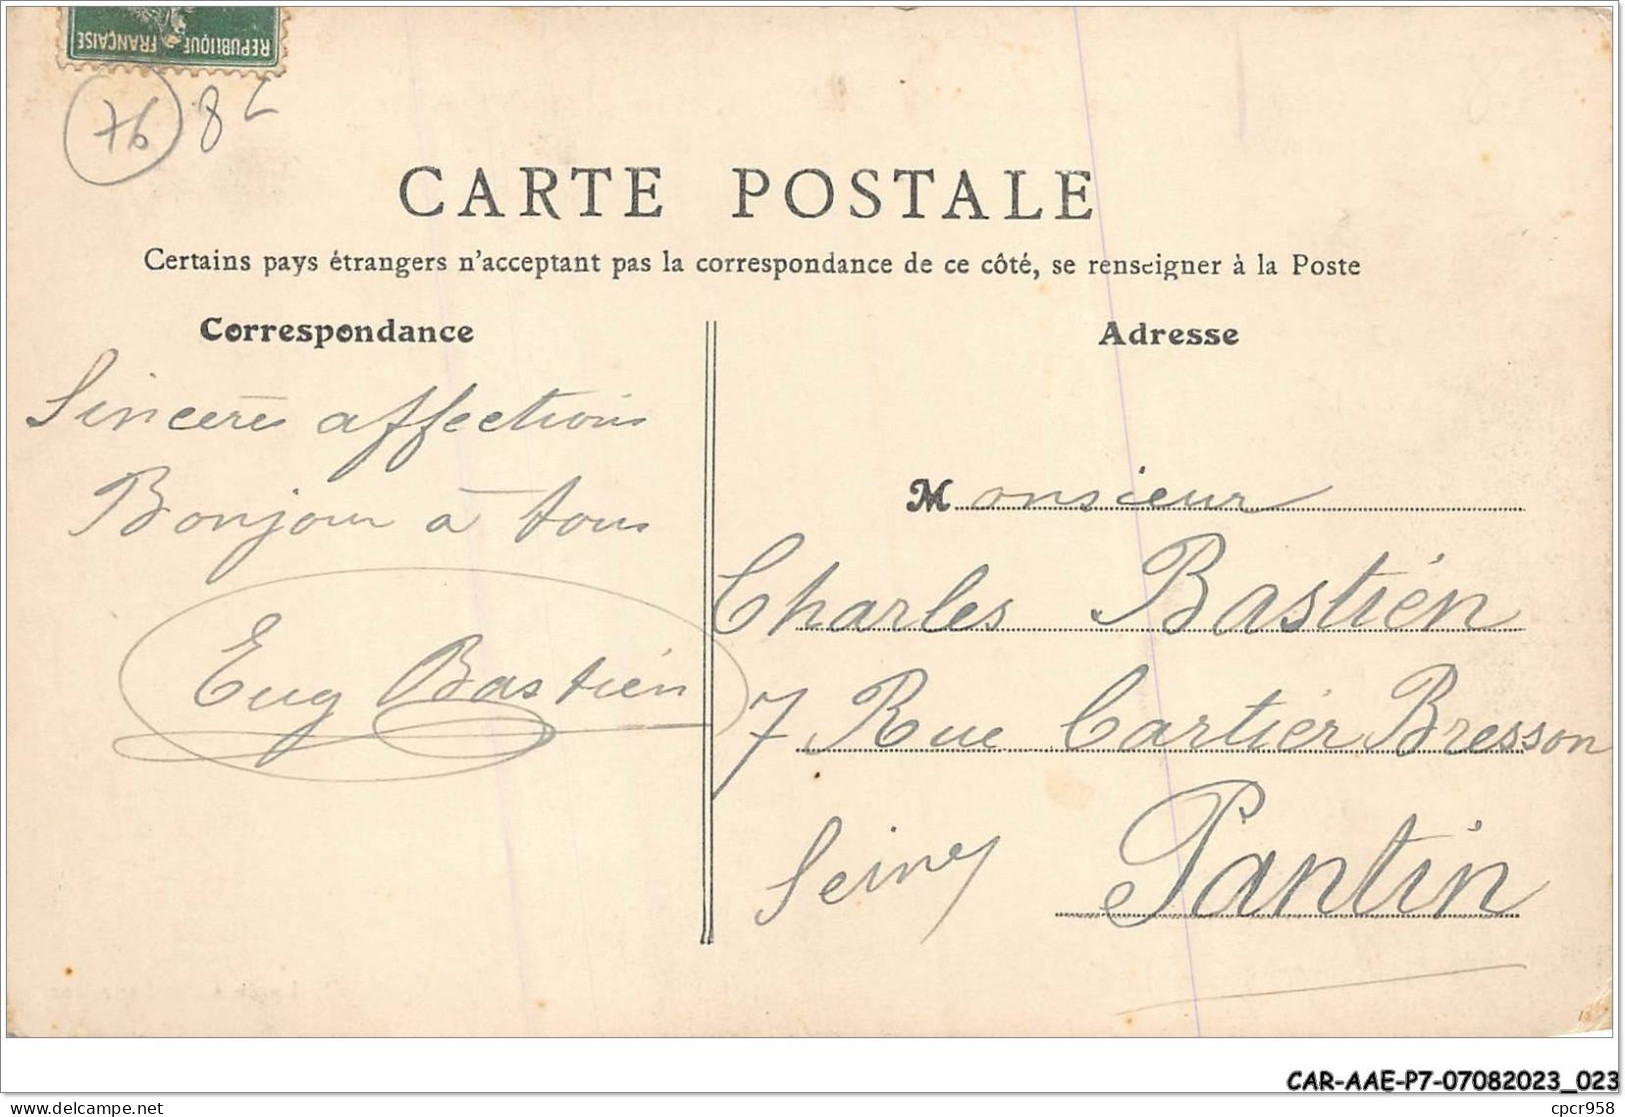 REPUBLIQUE FRANÇAISE
76 82
CARTE POSTALE
Certains pays étrangers n'acceptant pas la correspondance de ce côté, se renseigner à la Poste
Correspondance
Sincères affections
Bonjour à tous
Eug Bastien
Adresse
Monsieur
Charles Bastien
7 Rue Cartier Bresson
Pantin
Seine
CAR-AAE-P7-07082023_023
cpcr958